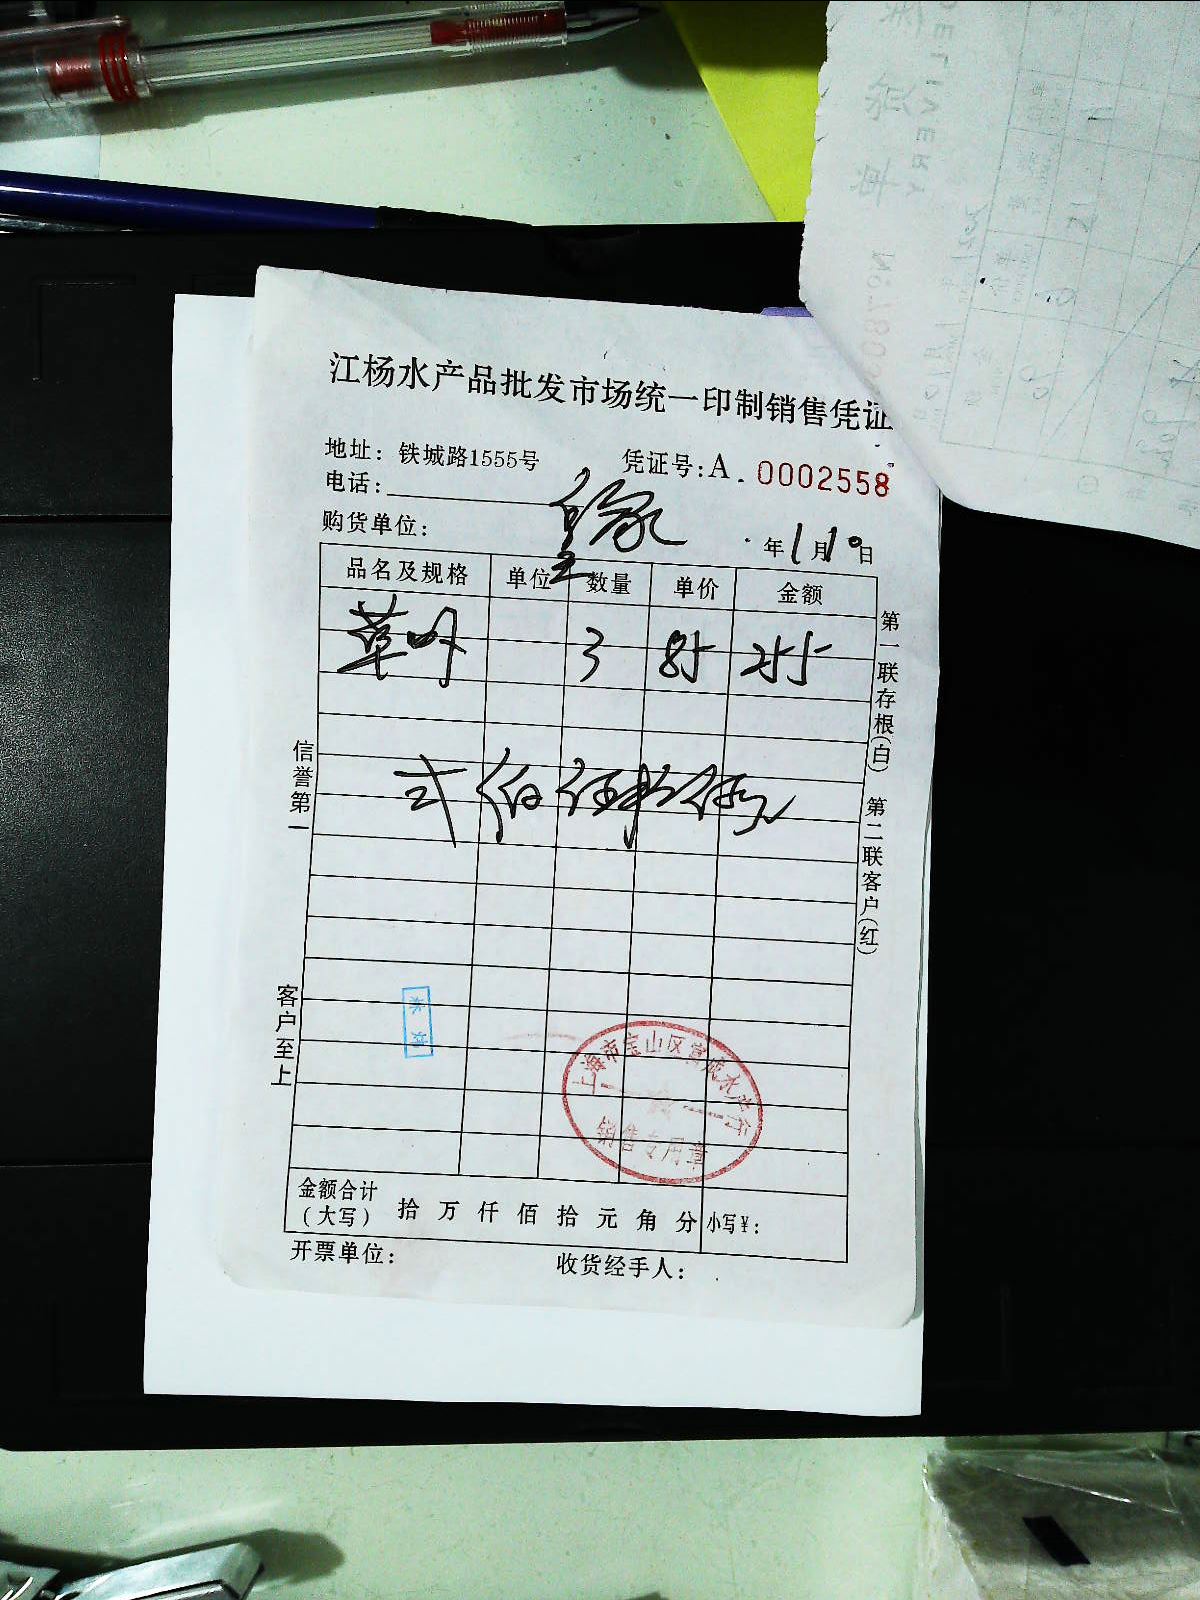 江杨水产品批发市场统一印制销售凭证
地址：铁城路1555号 凭证号:A 0002558
电话:
购货单位: 皇家 年1月10日
品名及规格 单位 数量 单价 金额
草虾 3 85 255
弍佰伍拾伍元
信誉第一
客户至上
第一联存根(白)
第二联客户(红)
上海市宝山区富成水产行
销售专用章
金额合计
（大写） 拾 万 仟 佰 拾 元 角 分 小写¥:
开票单位: 收货经手人:
DELIVERY